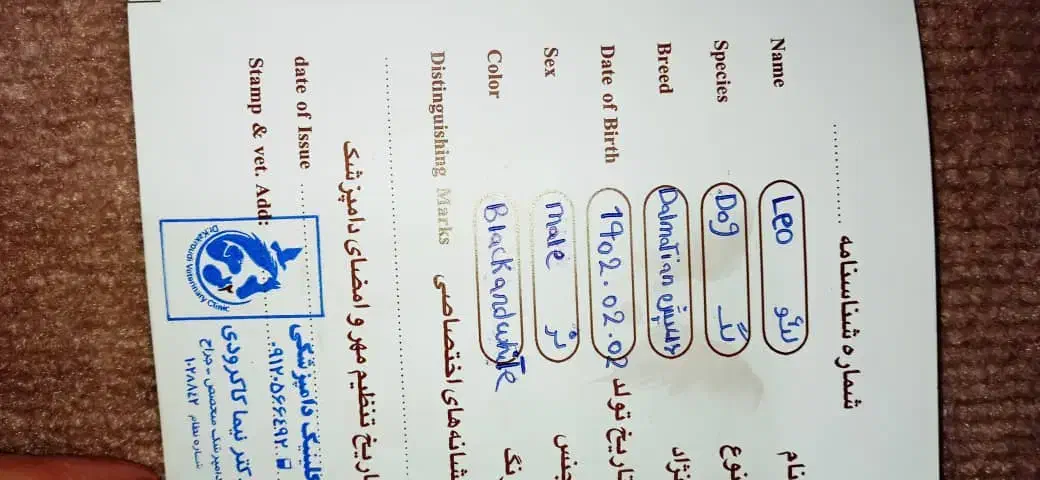 شماره شناسنامه
Name Leo لئو نام
Species Dog سگ نوع
Breed Dalmatian نژاد
Date of Birth 1402.02.02 تاریخ تولد
Sex male نر جنس
Color Black and white رنگ
Distinguishing Marks نشانه‌های اختصاصی
تاریخ تنظیم مهر و امضای دامپزشک
date of Issue
Stamp & vet. Add:
Dr.Kakroudi Veterinary Clinic
کلینیک دامپزشکی
دکتر نیما کاکرودی
دامپزشک متخصص - جراح
شماره نظام